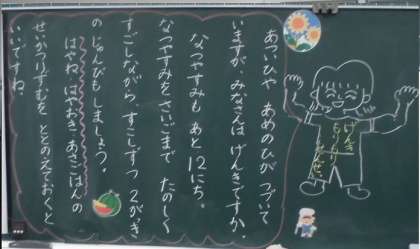 あついひや あめのひが つづいて
いますが、みなさんは げんきですか。
なつやすみも あと 12にち。
なつやすみをさいごまで たのしく
すごしながら すこしずつ 2がっき
のじゅんびも しましょう。
はやね はやおき あさごはんの
せいかつりずむを ととのえておくと
いいですね。
げんき
もりもり